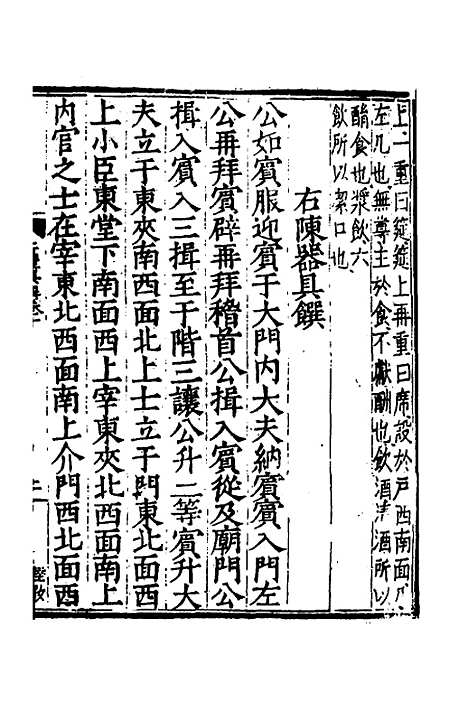 上二重曰筵筵上再重曰席設於戶西南面
左几也無尊主於食不獻酬也飲酒清酒所以
酳食也漿飲六
飲所以絜口也
右陳器具饌
公如賓服迎賓于大門內大夫納賓賓入門左
公再拜賓辟再拜稽首公揖入賓從及廟門公
揖入賓入三揖至于階三讓公升二等賓升大
夫立于東夾南西面北上士立于門東北面西
上小臣東堂下南面西上宰東夾北西面南上
內官之士在宰東北西面南上介門西北面西